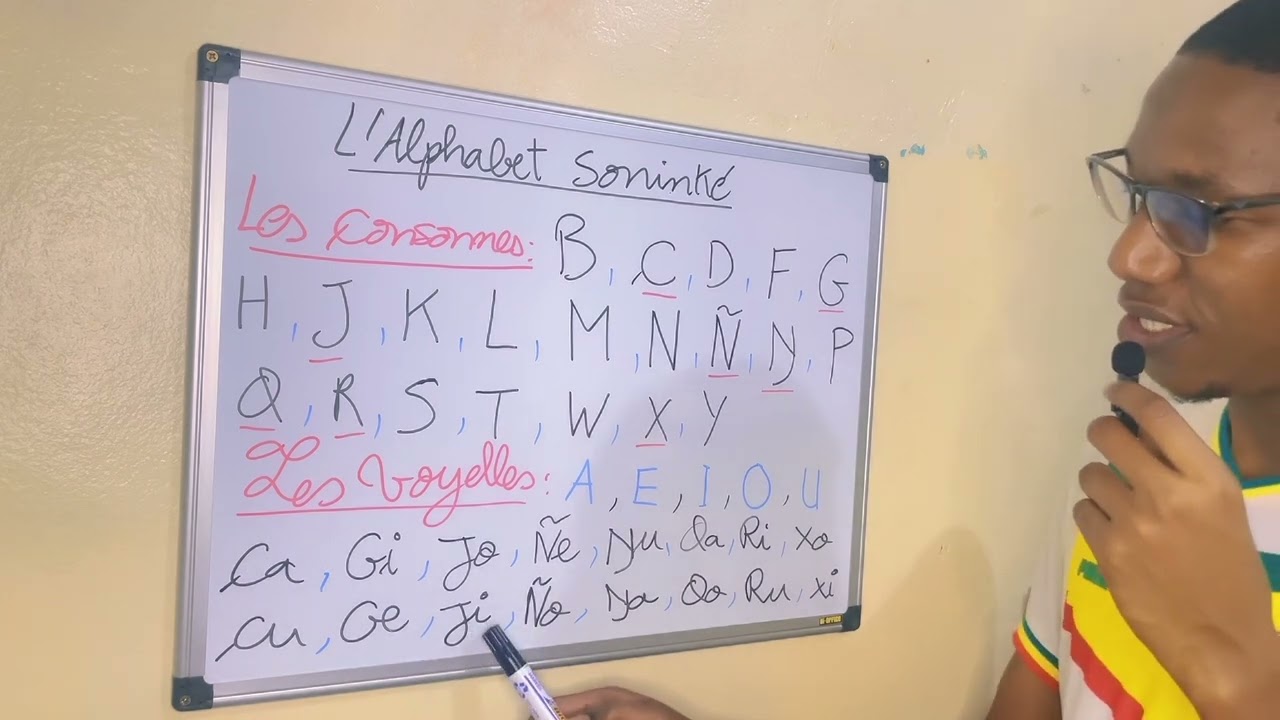 L'Alphabet Soninké
Les Consonnes: B, C, D, F, G
H, J, K, L, M, N, Ñ, Ŋ, P
Q, R, S, T, W, X, Y
Les Voyelles: A, E, I, O, U
Ca, Gi, Jo, Ñe, Ŋu, Qa, Ri, Xo
Cu, Ge, Ji, Ño, Ŋa, Qo, Ru, Xi